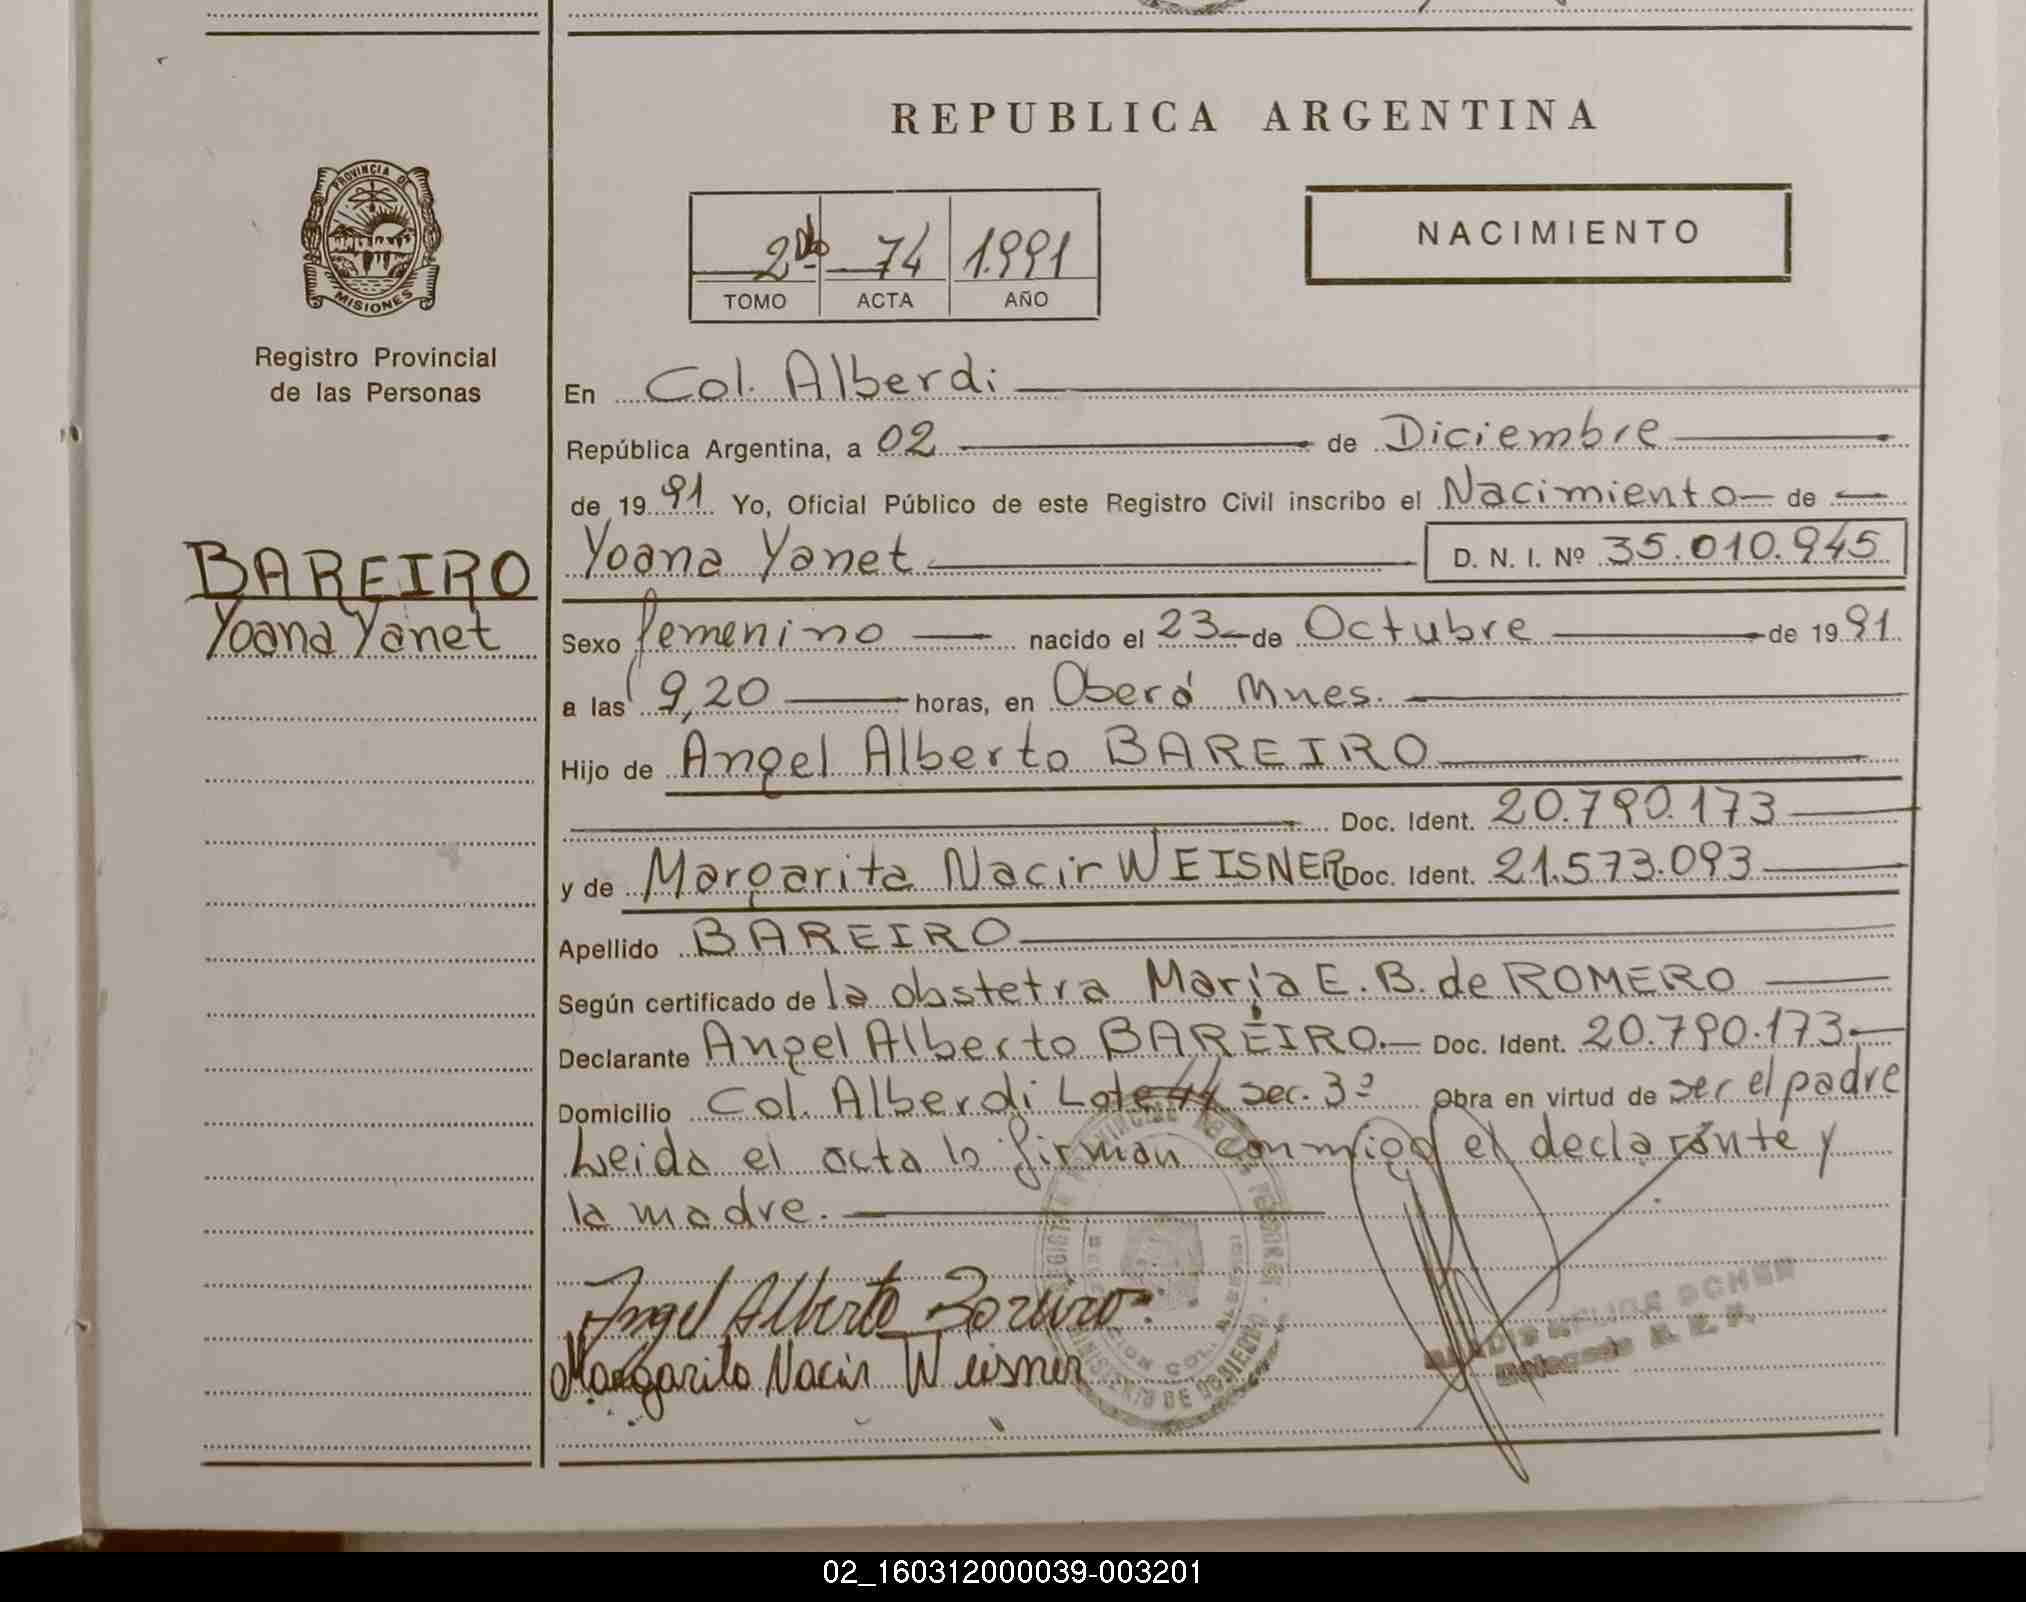 REPUBLICA ARGENTINA
PROVINCIA DE
MISIONES
Registro Provincial
de las Personas
BAREIRO
Yoana Yanet
2do 74 1.991
TOMO ACTA AÑO
NACIMIENTO
En Col. Alberdi
República Argentina, a 02 de Diciembre
de 1991 Yo, Oficial Público de este Registro Civil inscribo el Nacimiento de
Yoana Yanet D. N. I. Nº 35.010.945
Sexo femenino nacido el 23 de Octubre de 1991
a las 9,20 horas, en Oberá Mnes.
Hijo de Angel Alberto BAREIRO
Doc. Ident. 20.790.173
y de Margarita Nacir WEISNER Doc. Ident. 21.573.093
Apellido BAREIRO
Según certificado de la obstetra María E. B. de ROMERO
Declarante Angel Alberto BAREIRO. Doc. Ident. 20.790.173.
Domicilio Col. Alberdi Lote 44 sec. 3ª Obra en virtud de ser el padre
Leida el acta lo firman conmigo el declarante y
la madre.
Angel Alberto Bareiro
Margarita Nacir Weisner
MINISTERIO DE GOBIERNO
02_160312000039-003201